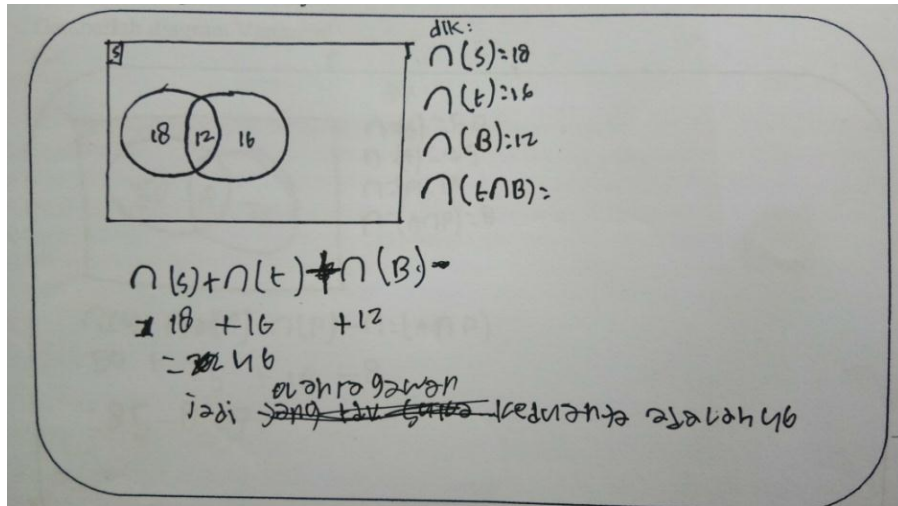 S
18 12 16
dlk:
n(S)=18
n(t)=16
n(B)=12
n(t∩B)=
n(S)+n(t)+n(B)-
18 +16 +12
= 46
olahragawan
jadi keduanya adalah 46